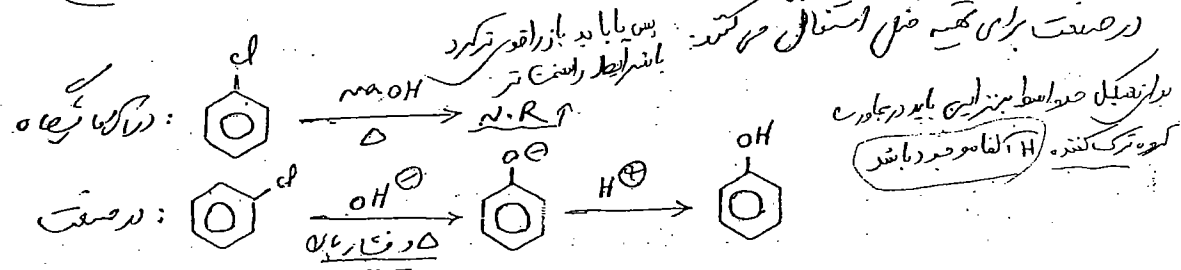 در صنعت برای تهیه فنل استفاده می کنند.
پس یا باید باز را قوی تر کرد
یا شرایط را سخت تر
در آزمایشگاه :
Cl
NaOH
Δ
N.R
برای تشکیل حد واسط بنزاین باید در مجاورت
گروه ترک کننده، H آلفا موجود باشد
در صنعت :
Cl
OH⊖
Δ و فشار بالا
O⊖
H⊕
OH